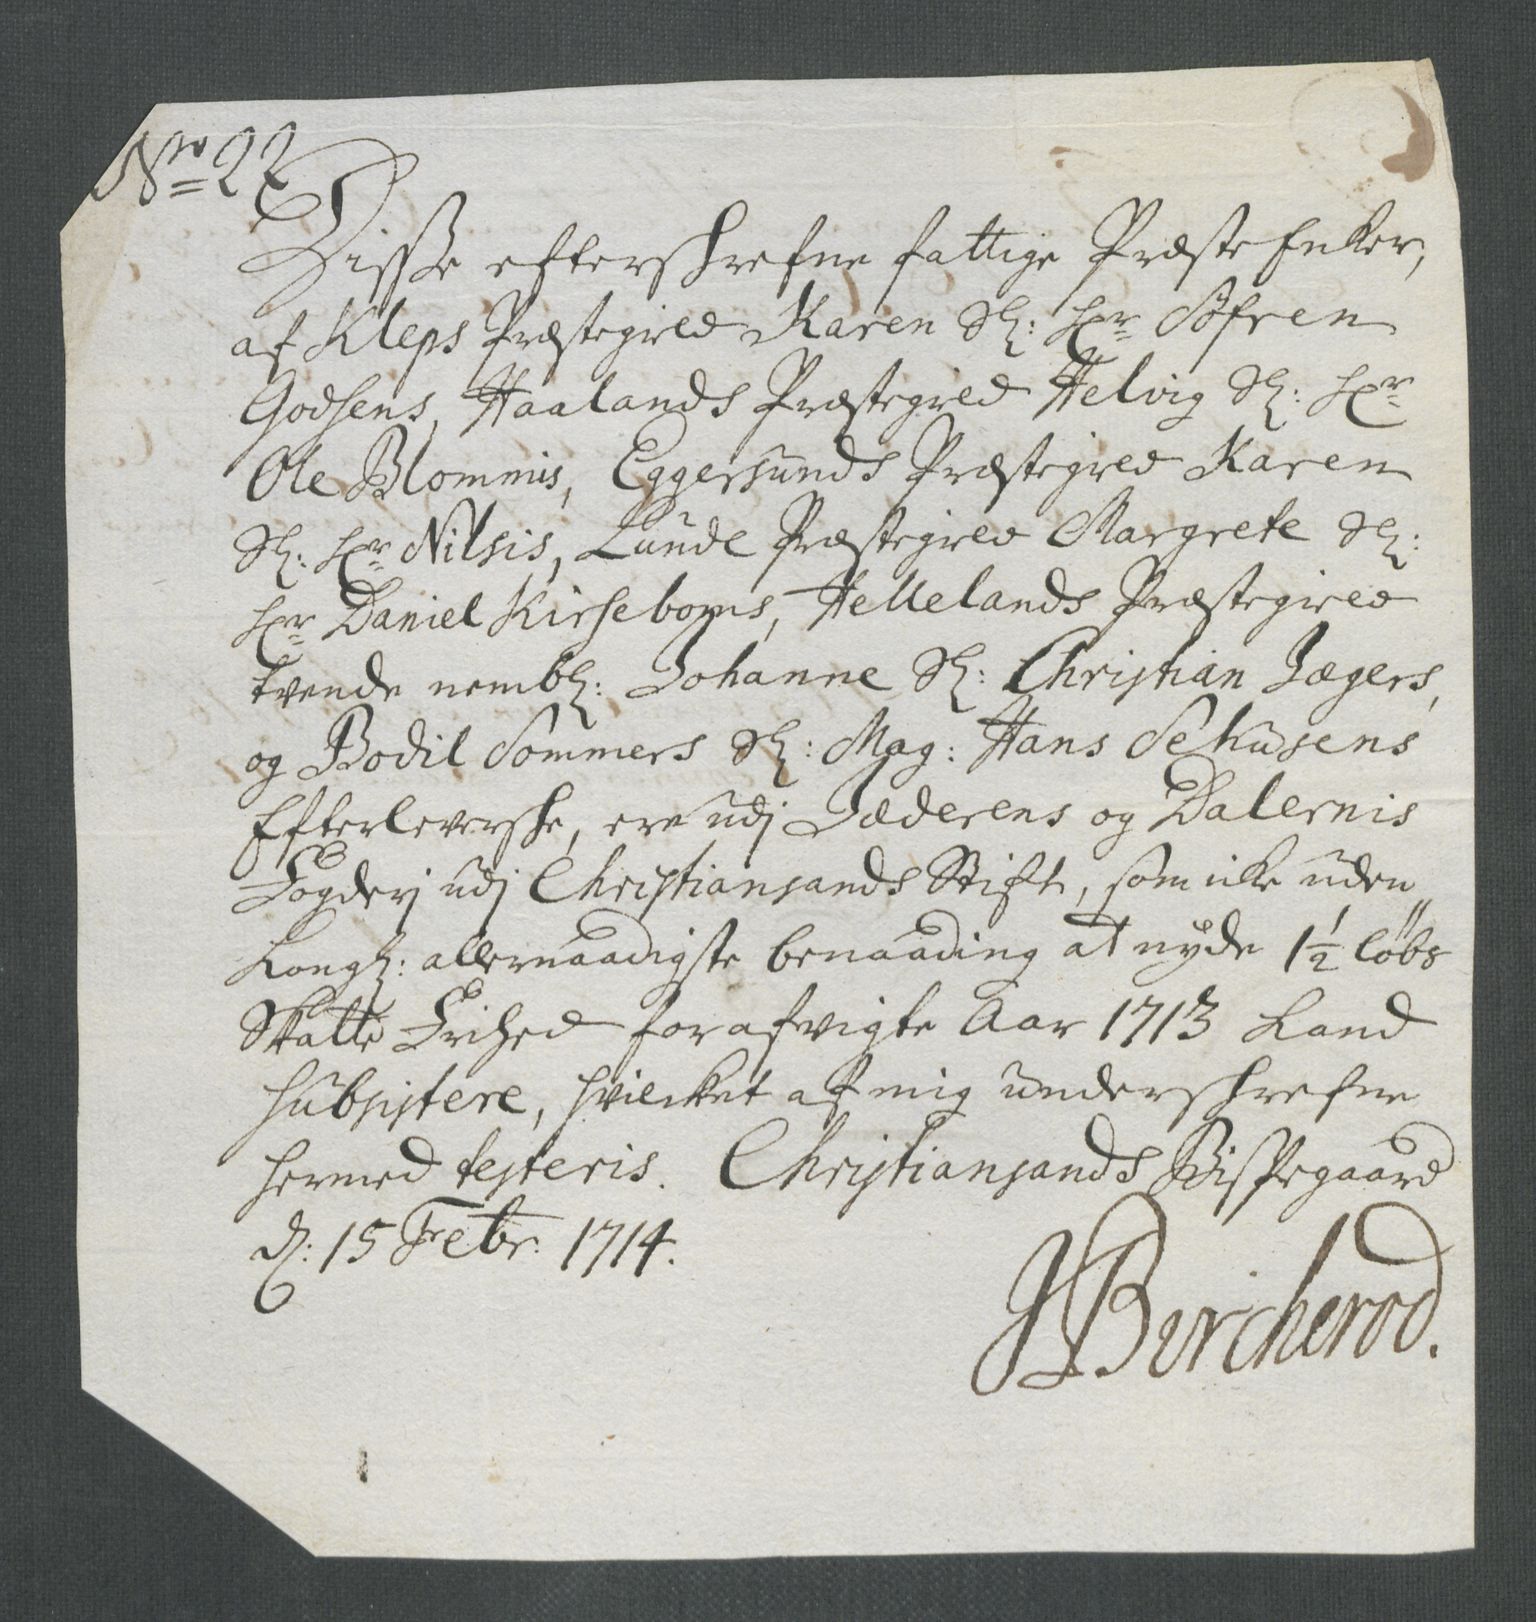 No 22
Disse efterskrefne fattige Præste Enker,
af Kleps Præstegield Karen Sl: Hr Söfren
Godsens, Haalands Præstegield Helvig Sl: Hr
Ole Blommis, Eggersunds Præstegield Karen
Sl: Hr Nilsis, Lunde Præstegield Margrete Sl:
Hr Daniel Kirseboms, Hellelands Præstegield
tvende nembl: Johanne Sl: Christian Jægers,
og Bodil Sommers Sl: Mag: Hans Sehusens
Efterleverske, ere udj Jæderens og Dalernis
Fogderj udj Christiansands Stift, som icke uden
Kongl: allernaadigste benaading at nyde 1 1/2 löbs
Skatte Frihed for afvigte Aar 1713 kand
subsistere, hvilcket af mig underskrefne
hermed testeris. Christiansands Bispegaard
d: 15 Febr: 1714.
J Bircherod.